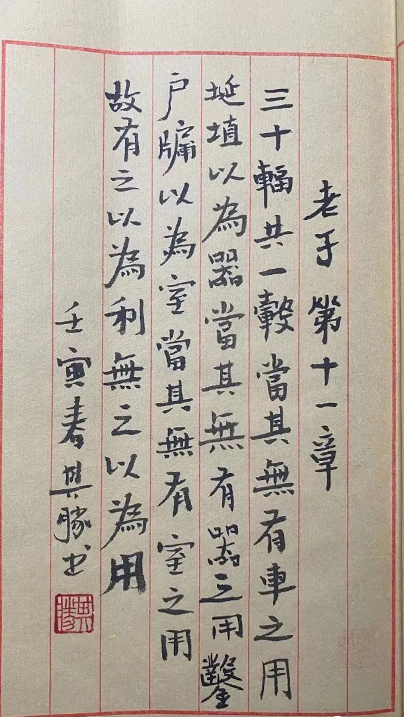 老子第十一章
三十輻共一轂當其無有車之用
埏埴以為器當其無有器之用鑿
户牖以為室當其無有室之用
故有之以為利無之以為用
壬寅春其勝书